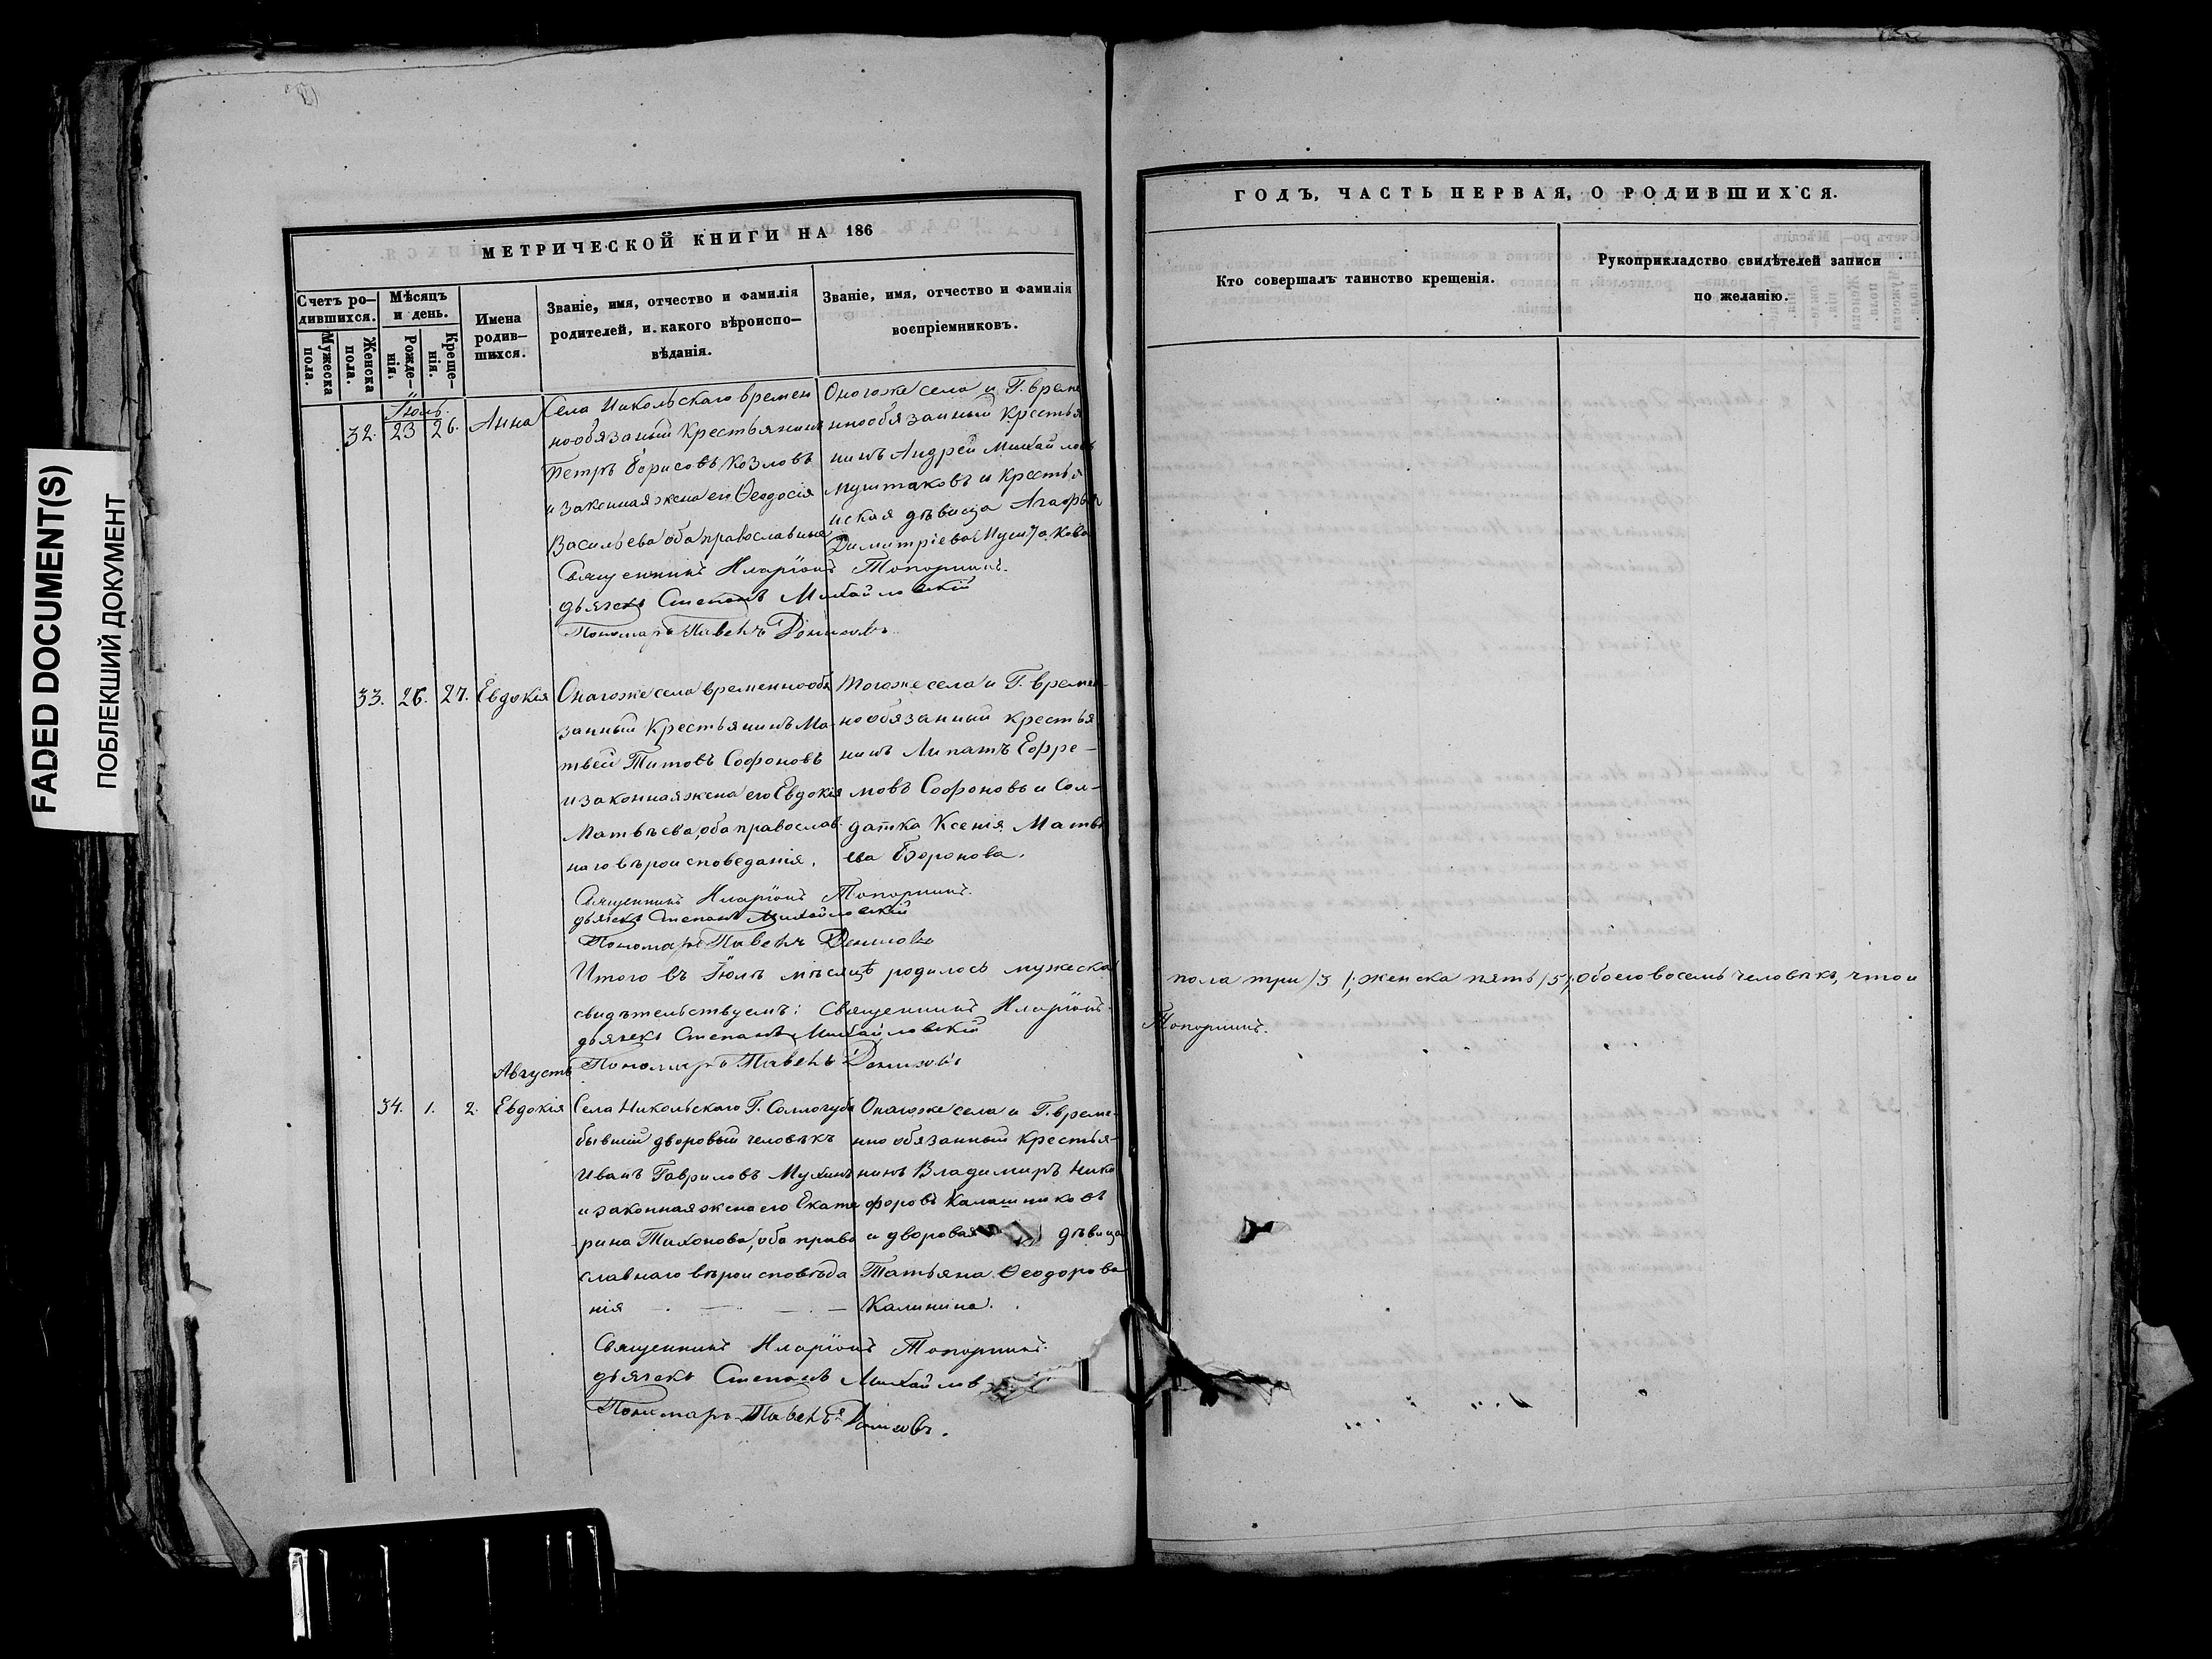 FADED DOCUMENT(S)
ПОБЛЕКШИЙ ДОКУМЕНТ
МЕТРИЧЕСКОЙ КНИГИ НА 186
Счетъ ро-
дившихся.
Мужеска
пола.
Женска
пола.
Мѣсяцъ
и день.
Рожде-
нія.
Креще-
нія.
Имена
родив-
шихся.
Званіе, имя, отчество и фамилія
родителей, и какого вѣроиспо-
вѣданія.
Званіе, имя, отчество и фамилія
воспріемниковъ.
Іюль.
32. 23 26. Анна
Села Никольскаго времен
нообязаный Крестьянинъ
Петръ Борисовъ Козловъ
и законная жена его Ѳеодосія
Васильева оба православные
Оногоже села и Г. време
ннообязанный Крестья
нинъ Андрей Михайловъ
Муштаковъ и Крестья
нская дѣвица Агафья
Димитріева Муштакова
Священникъ Иларіонъ Топорнинъ.
дьячекъ Степанъ Михайловскій
Пономарь Павелъ Дониловъ
33. 26. 27. Евдокія
Оногоже села временнообя
занный Крестьянинъ Ма-
твей Титовъ Софоновъ
и законная жена его Евдокія
Матвѣева, оба православ-
наго вѣроисповеданія.
Тогоже села и Г. времен-
нообязанный крестья
нинъ Липатъ Ефре-
мовъ Софоновъ и Сол-
датка Ксенія Матвѣ
ева Боронова.
Священникъ Иларіонъ Топорнинъ.
дьячекъ Степанъ Михайловскій
Пономарь Павелъ Дениловъ
Итого въ Іюлѣ мѣсяцѣ родилось мужеска пола три /3/; женска пять /5/; Обоего восемь человѣкъ, что и
свидѣтельствуемъ: Священникъ Иларіонъ Топорнинъ.
дьячекъ Степанъ Михайловскій
Пономарь Павелъ Дениловъ
Августъ
34. 1. 2. Евдокія
Села Никольскаго Г. Соллогуба
бывшій дворовый человѣкъ
Иванъ Гавриловъ Мухинъ
и законная жена его Екате
рина Тихонова, оба право
славнаго вѣроисповѣда
нія
Оногоже села и Г. време-
нно обязанный крестья-
нинъ Владимиръ Ники
форовъ Калашниковъ
и дворовая дѣвица
Татьяна Ѳеодорова
Калинина.
Священникъ Иларіонъ Топорнинъ.
дьячекъ Степанъ Михайлов
Пономарь Павелъ Дениловъ.
ГОДЪ, ЧАСТЬ ПЕРВАЯ, О РОДИВШИХСЯ.
Кто совершалъ таинство крещенія.
Рукоприкладство свидѣтелей записи
по желанію.